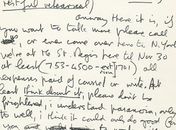 restful rehearsal)
anyway Here it is, if
you want to talk more please call
or even come over here to N.York
we're at the St. Regis here til Nov 30
at least (753-4500 - ext/1701) all
expenses paid of course! or write. At
least think about it, please don't be
frightened, i understand paranoia, only
to well, i think it could only do good